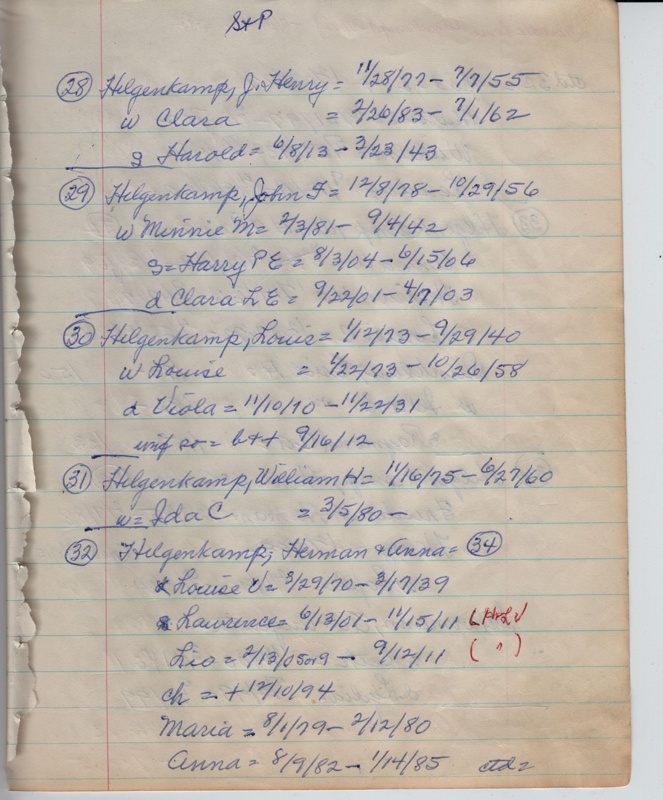 S&P
(28) Hilgenkamp, J. Henry = 11/28/77 - 7/7/55
w Clara = 2/26/83 - 7/1/62
s Harold = 6/8/13 - 3/23/43
(29) Hilgenkamp, John F = 12/8/78 - 10/29/56
w Minnie M = 2/3/81 - 9/4/42
s = Harry P E = 8/3/04 - 6/15/06
d Clara L E = 9/22/01 - 4/7/03
(30) Hilgenkamp, Louis = 1/12/73 - 9/29/40
w Louise = 1/22/73 - 10/26/58
d Viola = 11/10/10 - 11/22/31
inf so = b++ 9/16/12
(31) Hilgenkamp, William H = 11/16/75 - 6/27/60
w = Ida C = 3/5/80 -
(32) Hilgenkamp, Herman & Anna = (34)
Louise V = 3/29/70 - 3/17/39
Lawrence = 6/13/01 - 11/15/11
Lio = 2/13/05 or 9 - 9/12/11 ( " )
ch = + 12/10/94
Maria = 8/1/79 - 2/12/80
Anna = 8/9/82 - 1/14/85